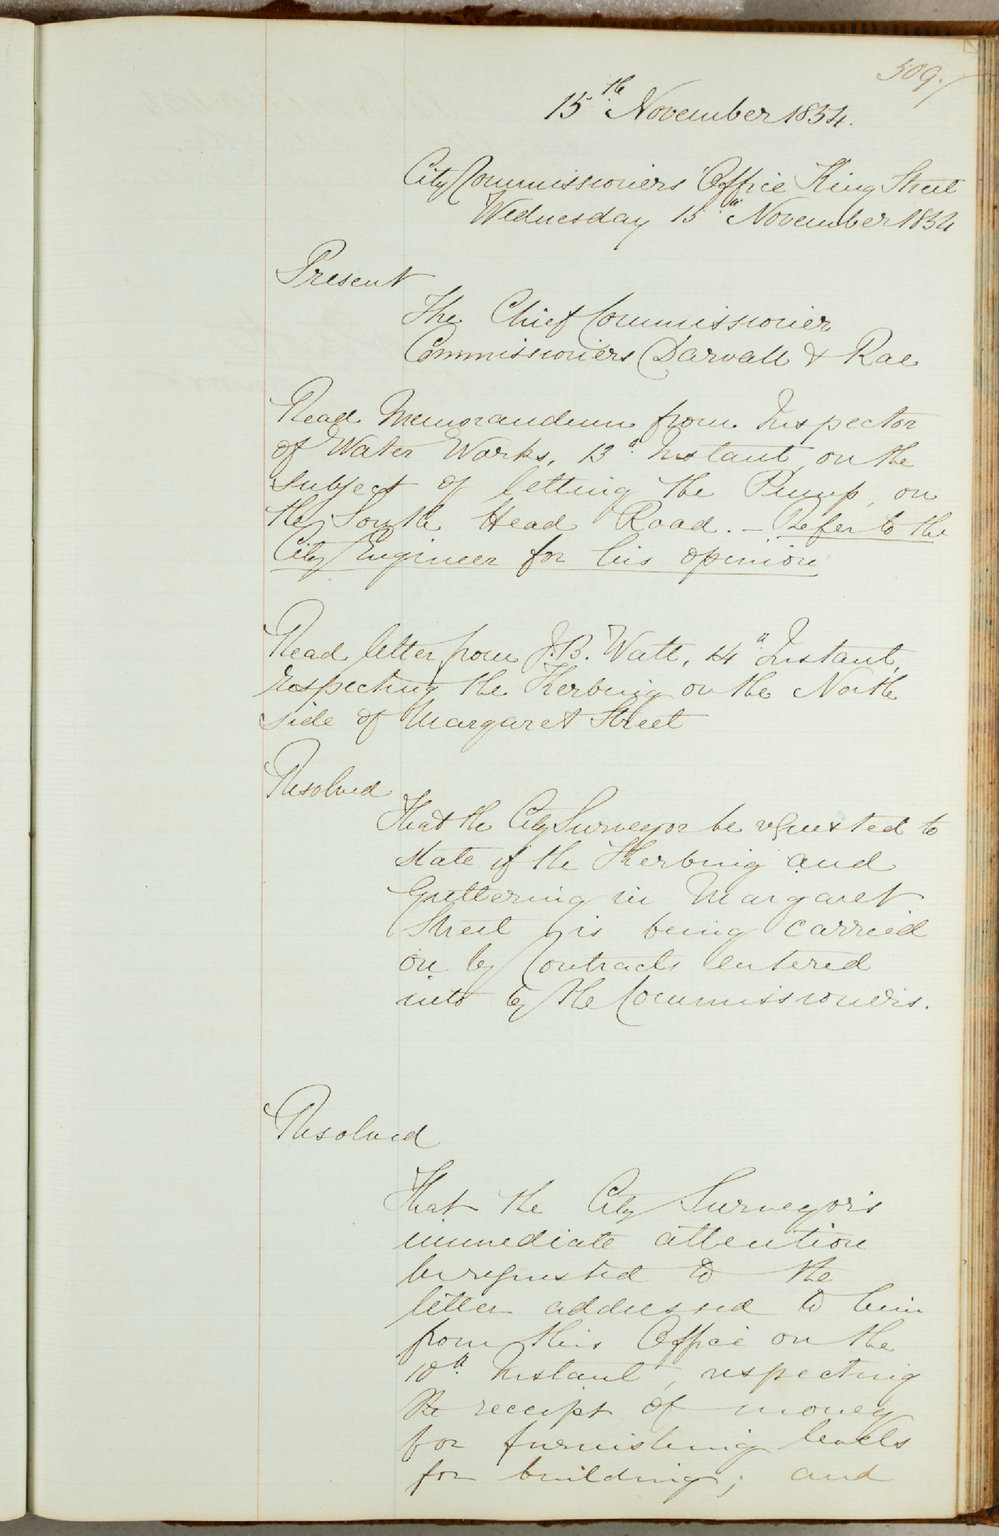 509.
15th November 1854.
City Commissioners Office King Street
Wednesday 15th November 1854
Present
The Chief Commissioner
Commissioners Darvall & Rae
Read Memorandum from Inspector
of Water Works, 13th Instant, on the
subject of letting the Pump, on
the South Head Road. - Refer to the
City Engineer for his opinion
Read letter from J.B. Watt, 14th Instant,
respecting the Kerbing on the North
side of Margaret Street
Resolved
That the City Surveyor be requested to
state if the Kerbing and
Guttering in Margaret
Street is being carried
on by Contracts entered
into by the Commissioners.
Resolved
That the City Surveyor's
immediate attention
be requested to the
letter addressed to him
from this Office on the
10th Instant, respecting
the receipt of money
for furnishing levels
for building; and